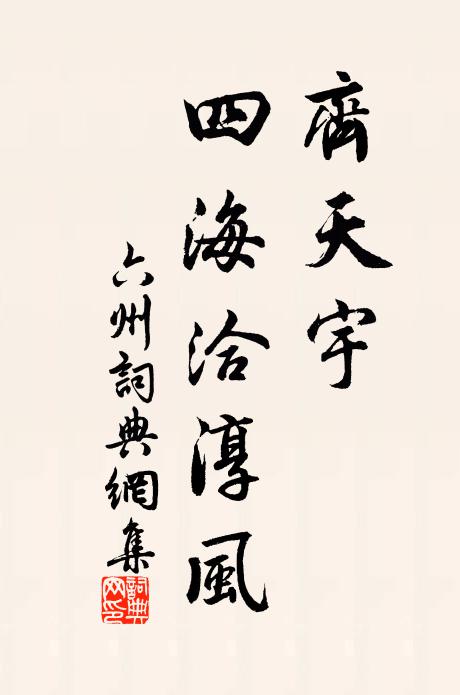 齊天宇
四海洽淳風
六州詞典網集
詞典網印